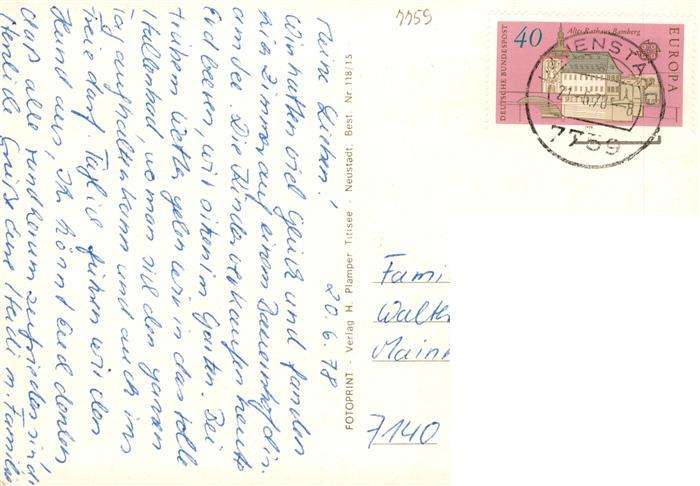 7759
20.6.78
Meine Lieben!
Wir hatten viel Glück und fanden
ein Zimmer auf einem Bauernhof dir.
am See. Die Kinder verkaufen heute
Erdbeeren, wir sitzen im Garten. Bei
trübem Wetter gehen wir in das tolle
Hallenbad, wo man sich den ganzen
Tag aufhalten kann und auch ins
Freie darf. Täglich führen wir den
Hund aus, Ihr könnt Euch denken
daß alle rundherum zufrieden sind.
Herzliche Grüße Eure Heidi m. Familie
FOTOPRINT - Verlag H. Plamper Titisee - Neustadt, Best. Nr 118/15
DEUTSCHE BUNDESPOST
40
Altes Rathaus Bamberg
EUROPA
ENSTA
7759
Fami
Walter
Main
7140